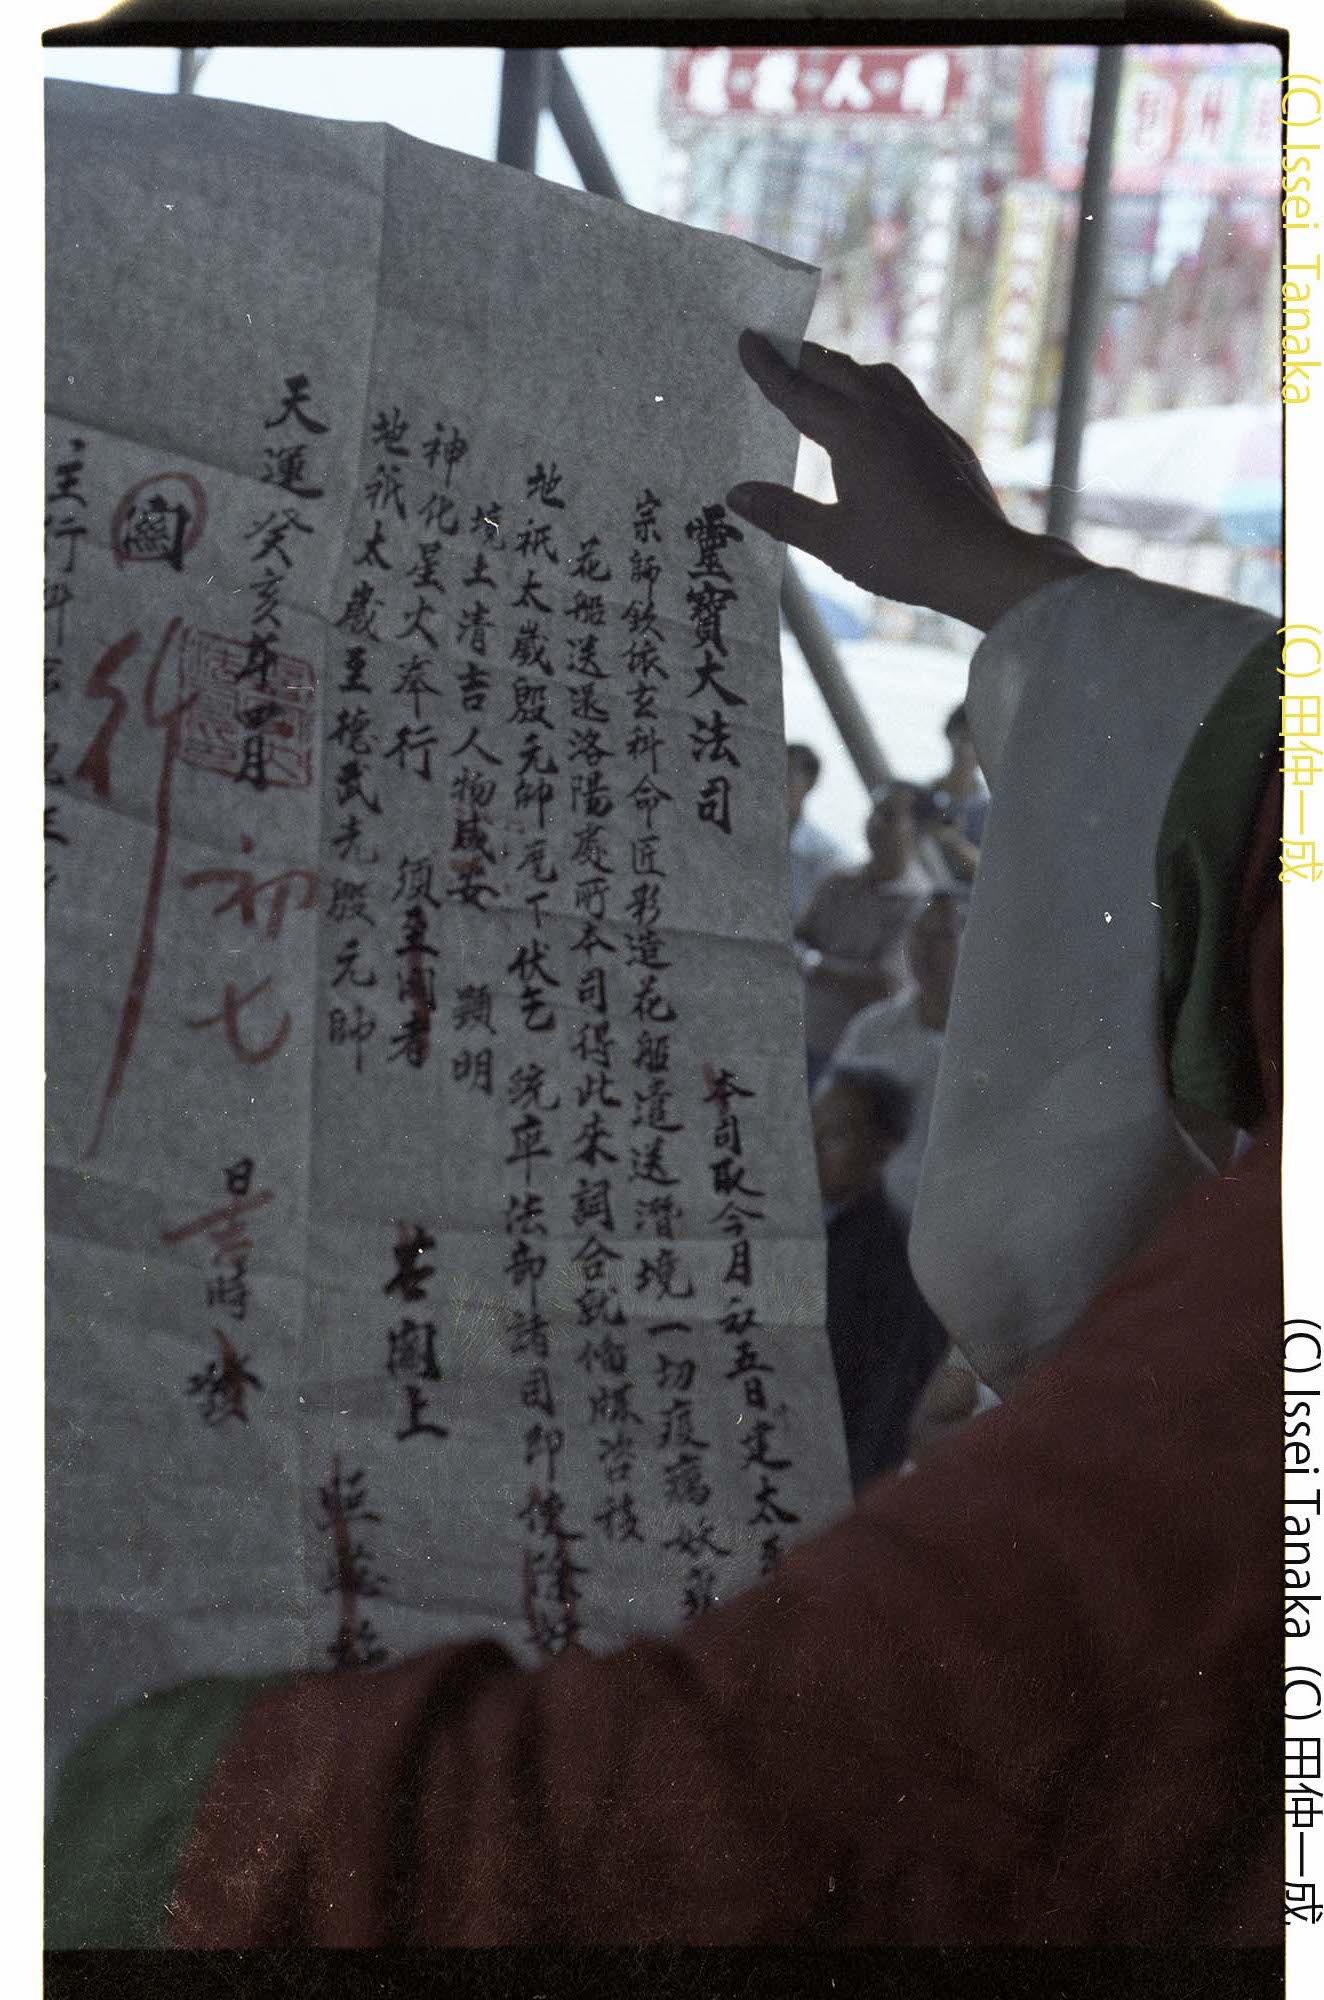 靈寶大法司
本司取今月初五日建太
宗師欽依玄科命匠彩造花船遣送潛境一切疫癘妖
花船送還洛陽處所本司得此來詞合就備牒咨移
地祇太歲殷元帥麾下伏乞 統率法部諸司卽使除
境土清吉人物咸安 顯明
神化星火奉行 須至關者 苦關上
地祇太歲至德武光殷元帥
天運癸亥年四月初七日吉時發
關
行
主行科
(C) Issei Tanaka
(C) 田仲一成
(C) Issei Tanaka (C) 田仲一成